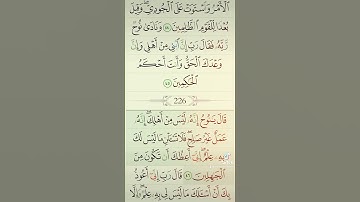 ٱلۡأَمۡرُ وَٱسۡتَوَتۡ عَلَى ٱلۡجُودِيِّۖ وَقِيلَ
بُعۡدٗا لِّلۡقَوۡمِ ٱلظَّٰلِمِينَ ٤٤ وَنَادَىٰ نُوحٞ
رَّبَّهُۥ فَقَالَ رَبِّ إِنَّ ٱبۡنِي مِنۡ أَهۡلِي وَإِنَّ
وَعۡدَكَ ٱلۡحَقُّ وَأَنتَ أَحۡكَمُ
ٱلۡحَٰكِمِينَ ٤٥
226
قَالَ يَٰنُوحُ إِنَّهُۥ لَيۡسَ مِنۡ أَهۡلِكَۖ إِنَّهُۥ
عَمَلٌ غَيۡرُ صَٰلِحٖۖ فَلَا تَسۡـَٔلۡنِ مَا لَيۡسَ لَكَ
بِهِۦ عِلۡمٌۖ إِنِّيٓ أَعِظُكَ أَن تَكُونَ مِنَ
ٱلۡجَٰهِلِينَ ٤٦ قَالَ رَبِّ إِنِّيٓ أَعُوذُ
بِكَ أَنۡ أَسۡـَٔلَكَ مَا لَيۡسَ لِي بِهِۦ عِلۡمٞۖ وَإِلَّا